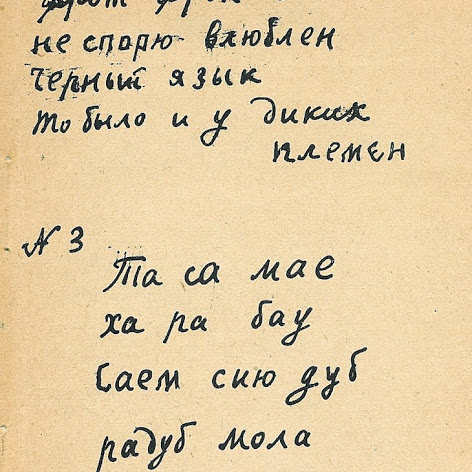 фрот фрон
не спорю влюблен
черный язык
то было и у диких
племен
№ 3
Та са мае
ха ра бау
Саем сию дуб
радуб мола